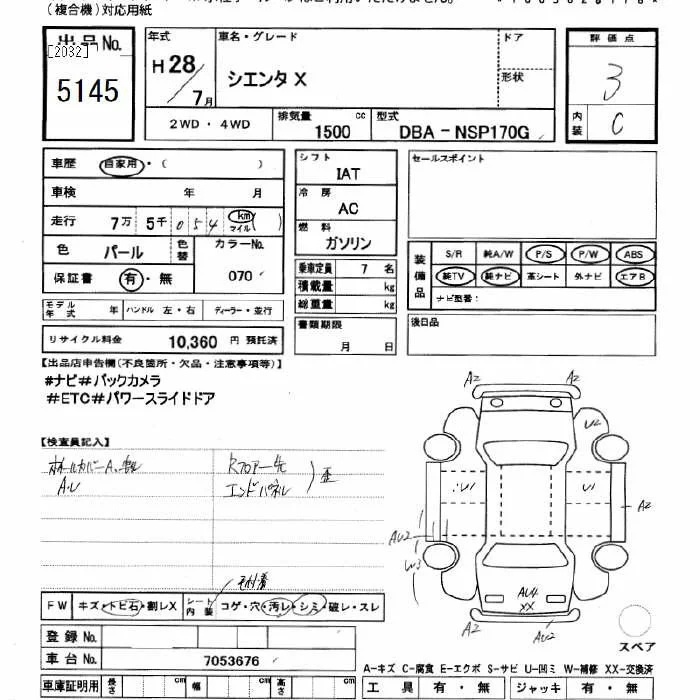 (複合機)対応用紙
出品No.
[2032]
5145
年式
H28/7月
車名・グレード
シエンタ X
ドア
形状
評価点
3
内装
C
2WD・4WD
排気量
1500 cc
型式
DBA-NSP170G
車歴 自家用・( )
車検 年 月
走行 7万 5千 0 5 4 km マイル ( )
色 パール 色替
カラーNo.
070
保証書 有・無
シフト
IAT
冷房
AC
燃料
ガソリン
乗車定員 7 名
積載量 kg
総重量 kg
書類期限
月 日
セールスポイント
装備品
S/R 純A/W P/S P/W ABS
純TV 純ナビ 革シート 外ナビ エアB
ナビ型番:
後日品
モデル年式 年 ハンドル 左・右 ディーラー・並行
リサイクル料金 10,360 円 預託済
【出品店申告欄(不良箇所・欠品・注意事項等)】
#ナビ#バックカメラ
#ETC#パワースライドドア
【検査員記入】
A.U
エンドパネル
歪
FW キズ・トビ石・割レX
シート内装 コゲ・穴・汚レ・シミ・破レ・スレ
登録No.
車台No. 7053676
車庫証明用 長さ cm 幅 cm 高さ cm
A2 A2
U2
U1 U1
A2
AU2
W3
AU4
XX
A2 AU2
スペア
A-キズ C-腐食 E-エクボ S-サビ U-凹ミ W-補修 XX-交換済
工具 有・無 ジャッキ 有・無